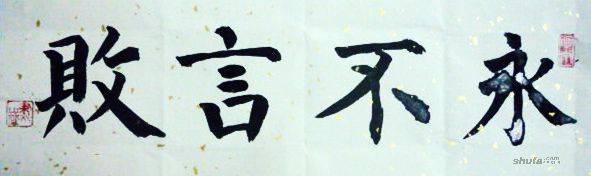 永不言敗
shufa.com